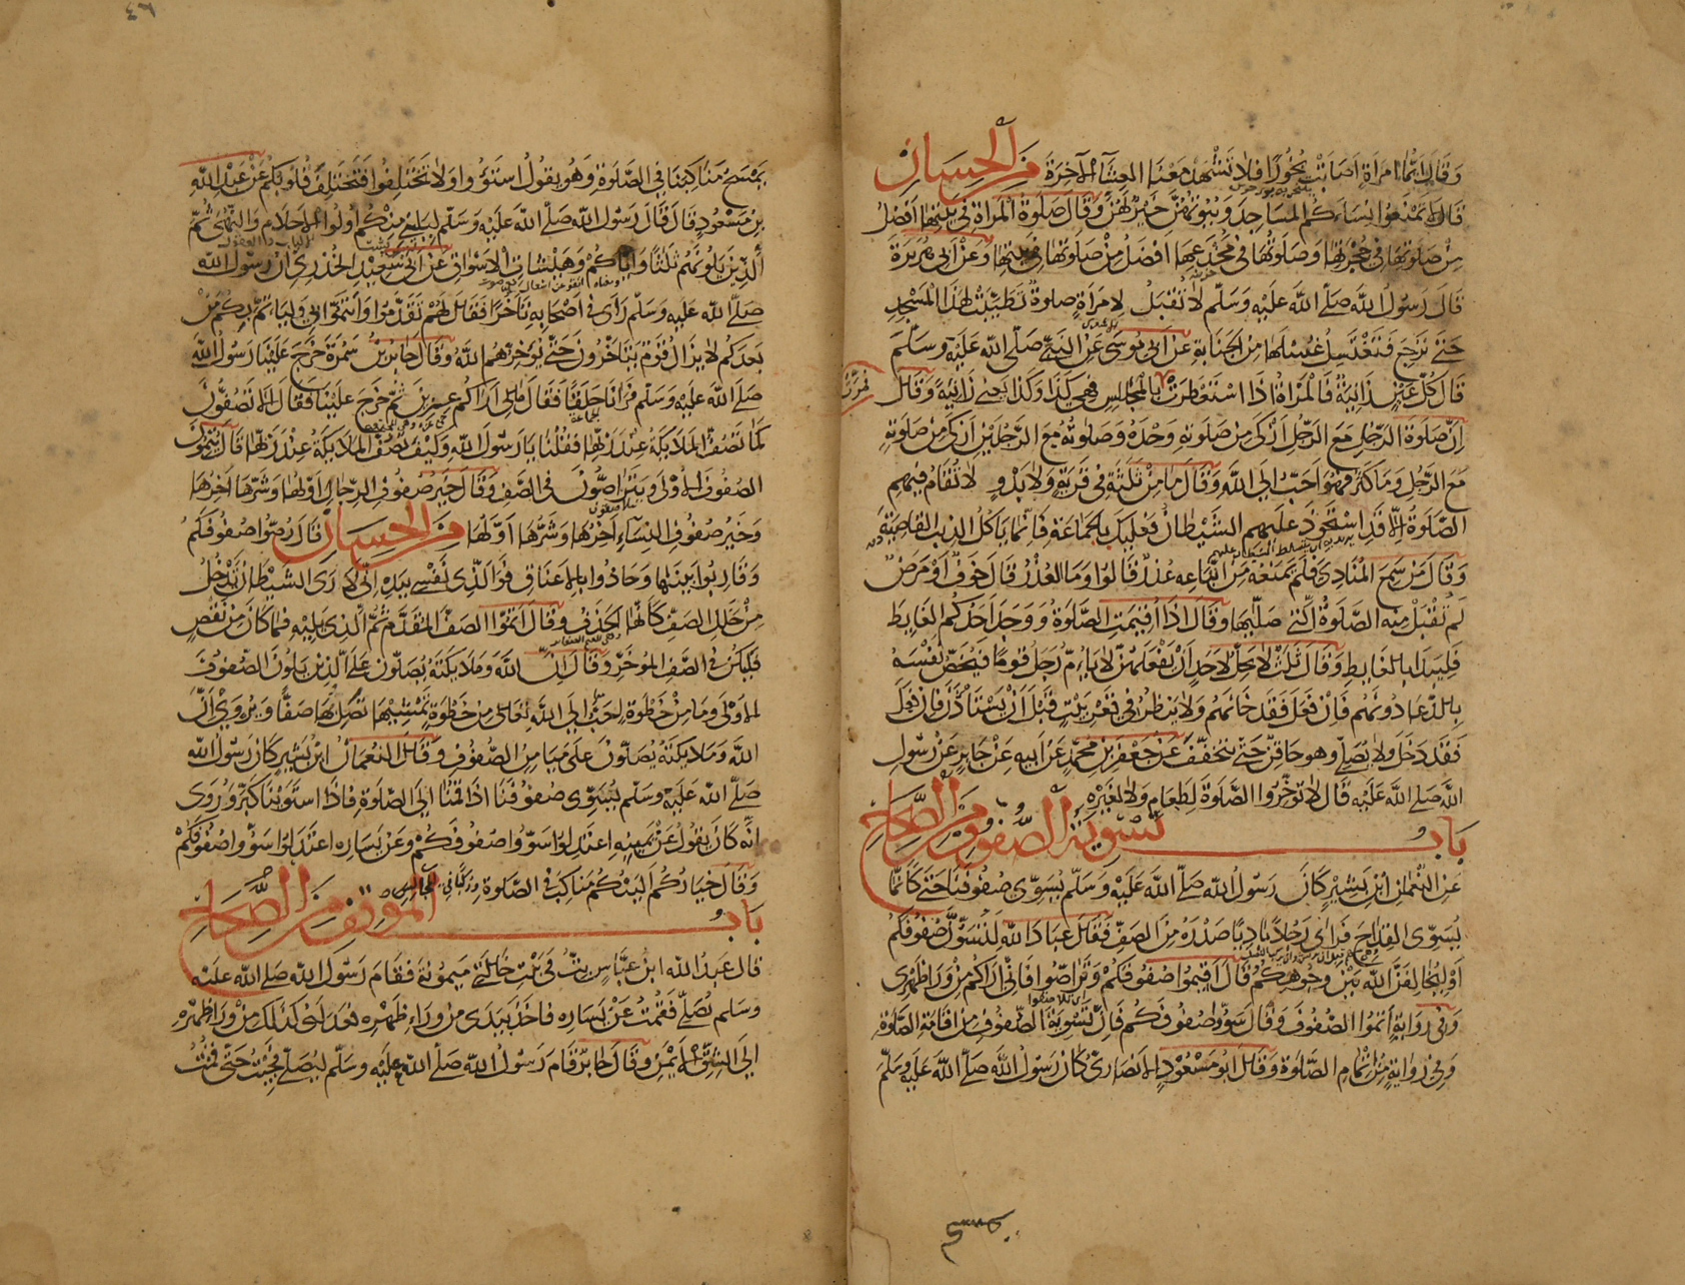 وَقَالَ أَيُّمَا امْرَأَةٍ أَصَابَتْ بَخُورًا فَلَا تَشْهَدْ مَعَنَا العِشَاءَ الآخِرَةَ مِنَ الْحِسَانِ
قَالَ لَا تَمْنَعُوا نِسَاءَكُمُ المَسَاجِدَ وَبُيُوتُهُنَّ خَيْرٌ لَهُنَّ وَقَالَ صَلَوةُ المَرْأَةِ فِي بَيْتِهَا أَفْضَلُ
مِنْ صَلَوتِهَا فِي حُجْرَتِهَا وَصَلَوتُهَا فِي مُخْدَعِهَا أَفْضَلُ مِنْ صَلَوتِهَا فِي بَيْتِهَا وَعَنْ أَبِي هُرَيْرَةَ
قَالَ رَسُولُ اللهِ صَلَّى اللهُ عَلَيْهِ وَسَلَّمَ لَا تُقْبَلُ لِامْرَأَةٍ صَلوةٌ تَطَيَّبَتْ لِهَذَا المَسْجِدِ
حَتَّى تَرْجِعَ فَتَغْتَسِلَ غُسْلَهَا مِنَ الجَنَابَةِ عَنْ أَبِي مُوسَى عَنِ النَّبِيِّ صَلَّى اللهُ عَلَيْهِ وَسَلَّمَ
قَالَ كُلُّ عَيْنٍ زَانِيَةٌ فَالمَرْأَةُ إِذَا اسْتَعْطَرَتْ بِالمَجْلِسِ فَهِيَ كَذَا وَكَذَا يَعْنِي زَانِيَةً وَقَالَ
إِنَّ صَلَوةَ الرَّجُلِ مَعَ الرَّجُلِ أَزْكَى مِنْ صَلَوتِهِ وَحْدَهُ وَصَلَوتُهُ مَعَ الرَّجُلَيْنِ أَزْكَى مِنْ صَلَوتِهِ
مَعَ الرَّجُلِ وَمَا كَثُرَ فَهُوَ أَحَبُّ إِلَى اللهِ وَقَالَ مَا مِنْ ثَلَثَةٍ فِي قَرْيَةٍ وَلَا بَدْوٍ لَا تُقَامُ فِيهِمِ
الصَّلَوةُ إِلَّا قَدِ اسْتَحْوَذَ عَلَيْهِمُ الشَّيْطَانُ فَعَلَيْكَ بِالجَمَاعَةِ فَإِنَّمَا يَأْكُلُ الذِّئْبُ القَاصِيَةَ
وَقَالَ مَنْ سَمِعَ المُنَادِيَ فَلَمْ يَمْنَعْهُ مِنِ اتِّبَاعِهِ عُذْرٌ قَالُوا وَمَا العُذْرُ قَالَ خَوْفٌ أَوْ مَرَضٌ
لَمْ تُقْبَلْ مِنْهُ الصَّلَوةُ الَّتِي صَلَّيهَا وَقَالَ إِذَا أُقِيمَتِ الصَّلَوةُ وَوَجَدَ أَحَدُكُمُ الغَايِطَ
فَلْيَبْدَأْ بِالغَايِطِ وَقَالَ ثَلَثٌ لَا يَحِلُّ لِأَحَدٍ أَنْ يَفْعَلَهُنَّ لَا يَؤُمُّ رَجُلٌ قَوْمًا فَيَخُصَّ نَفْسَهُ
بِالدُّعَاءِ دُونَهُمْ فَإِنْ فَعَلَ فَقَدْ خَانَهُمْ وَلَا يَنْظُرْ فِي قَعْرِ بَيْتٍ قَبْلَ أَنْ يَسْتَأْذِنَ فَإِنْ فَعَلَ
فَقَدْ دَخَلَ وَلَا يُصَلِّي وَهُوَ حَاقِنٌ حَتَّى يَتَخَفَّفَ عَنْ جَعْفَرِ بْنِ مُحَمَّدٍ عَنْ أَبِيهِ عَنْ جَابِرٍ عَنْ رَسُولِ
اللهِ صَلَّى اللهُ عَلَيْهِ قَالَ لَا تُؤَخِّرُوا الصَّلَاةَ لِطَعَامٍ وَلَا لِغَيْرِهِ
بَابُ تَسْوِيَةِ الصُّفُوفِ مِنَ الصِّحَاحِ
عَنِ النُّعْمَانِ ابْنِ بَشِيرٍ كَانَ رَسُولُ اللهِ صَلَّى اللهُ عَلَيْهِ وَسَلَّمَ يُسَوِّي صُفُوفَنَا حَتَّى كَأَنَّمَا
يُسَوِّي القِدَاحَ فَرَأَى رَجُلًا بَادِيًا صَدْرُهُ مِنَ الصَّفِّ فَقَالَ عِبَادَ اللهِ لَتُسَوُّنَّ صُفُوفَكُمْ
أَوْ لَيُخَالِفَنَّ اللهُ بَيْنَ وُجُوهِكُمْ قَالَ أَقِيمُوا صُفُوفَكُمْ وَتَرَاصُّوا فَإِنِّي أَرَاكُمْ مِنْ وَرَاءِ ظَهْرِي
وَفِي رِوَايَةٍ أَتِمُّوا الصُّفُوفَ وَقَالَ سَوُّوا صُفُوفَكُمْ فَإِنَّ تَسْوِيَةَ الصُّفُوفِ مِنْ إِقَامَةِ الصَّلَوةِ
وَفِي رِوَايَةٍ مِنْ تَمَامِ الصَّلَوةِ وَقَالَ أَبُو مَسْعُودٍ الأَنْصَارِيُّ كَانَ رَسُولُ اللهِ صَلَّى اللهُ عَلَيْهِ وَسَلَّمَ
يمسح
٤٦
يَمْسَحُ مَنَاكِبَنَا فِي الصَّلَوةِ وَهُوَ يَقُولُ اسْتَوُوا وَلَا تَخْتَلِفُوا فَتَخْتَلِفَ قُلُوبُكُمْ عَنْ عَبْدِ اللهِ
بْنِ مَسْعُودٍ قَالَ قَالَ رَسُولُ اللهِ صَلَّى اللهُ عَلَيْهِ وَسَلَّمَ لِيَلِيَنِي مِنْكُمْ أُولُوا الأَحْلَامِ وَالنُّهَى ثُمَّ
الَّذِينَ يَلُونَهُمْ ثَلَثًا وَإِيَّاكُمْ وَهَيْشَاتِ الأَسْوَاقِ عَنْ أَبِي سَعِيدٍ الخُدْرِيِّ أَنَّ رَسُولَ اللهِ
صَلَّى اللهُ عَلَيْهِ وَسَلَّمَ رَأَى فِي أَصْحَابِهِ تَأَخُّرًا فَقَالَ لَهُمْ تَقَدَّمُوا وَأْتَمُّوا بِي وَلْيَأْتَمَّ بِكُمْ مَنْ
بَعْدَكُمْ لَا يَزَالُ قَوْمٌ يَتَأَخَّرُونَ حَتَّى يُؤَخِّرَهُمُ اللهُ وَقَالَ جَابِرُ بْنُ سَمُرَةَ خَرَجَ عَلَيْنَا رَسُولُ اللهِ
صَلَّى اللهُ عَلَيْهِ وَسَلَّمَ فَرَآنَا حَلَقًا فَقَالَ مَا لِي أَرَاكُمْ عِزِينَ ثُمَّ خَرَجَ عَلَيْنَا فَقَالَ أَلَا تَصُفُّونَ
كَمَا تَصُفُّ المَلَائِكَةُ عِنْدَ رَبِّهَا فَقُلْنَا يَا رَسُولَ اللهِ وَكَيْفَ تَصُفُّ المَلَائِكَةُ عِنْدَ رَبِّهَا قَالَ يُتِمُّونَ
الصُّفُوفَ الأُولَى وَيَتَرَاصُّونَ فِي الصَّفِّ وَقَالَ خَيْرُ صُفُوفِ الرِّجَالِ أَوَّلُهَا وَشَرُّهَا آخِرُهَا
وَخَيْرُ صُفُوفِ النِّسَاءِ آخِرُهَا وَشَرُّهَا أَوَّلُهَا مِنَ الْحِسَانِ قَالَ رُصُّوا صُفُوفَكُمْ
وَقَارِبُوا بَيْنَهَا وَحَاذُوا بِالأَعْنَاقِ فَوَالَّذِي نَفْسِي بِيَدِهِ إِنِّي لَأَرَى الشَّيْطَانَ يَدْخُلُ
مِنْ خَلَلِ الصَّفِّ كَأَنَّهَا الحَذَفُ وَقَالَ أَتِمُّوا الصَّفَّ المُقَدَّمَ ثُمَّ الَّذِي يَلِيهِ فَمَا كَانَ مِنْ نَقْصٍ
فَلْيَكُنْ فِي الصَّفِّ المُؤَخَّرِ وَقَالَ إِنَّ اللهَ وَمَلَائِكَتَهُ يُصَلُّونَ عَلَى الَّذِينَ يَلُونَ الصُّفُوفَ
الأُولَى وَمَا مِنْ خَطْوَةٍ أَحَبُّ إِلَى اللهِ تَعَالَى مِنْ خَطْوَةٍ تَمْشِيهَا تَصِلُ بِهَا صَفًّا وَيُرْوَى أَنَّ
اللهَ وَمَلَائِكَتَهُ يُصَلُّونَ عَلَى مَيَامِنِ الصُّفُوفِ وَقَالَ النُّعْمَانُ ابْنُ بَشِيرٍ كَانَ رَسُولُ اللهِ
صَلَّى اللهُ عَلَيْهِ وَسَلَّمَ يُسَوِّي صُفُوفَنَا إِذَا قُمْنَا إِلَى الصَّلَاةِ فَإِذَا اسْتَوَيْنَا كَبَّرَ وَرُوِيَ
أَنَّهُ كَانَ يَقُولُ عَنْ يَمِينِهِ اعْتَدِلُوا سَوُّوا صُفُوفَكُمْ وَعَنْ يَسَارِهِ اعْتَدِلُوا سَوُّوا صُفُوفَكُمْ
وَقَالَ خِيَارُكُمْ أَلْيَنُكُمْ مَنَاكِبَ فِي الصَّلَوةِ
بَابُ المَوْقِفِ مِنَ الصِّحَاحِ
قَالَ عَبْدُ اللهِ ابْنُ عَبَّاسٍ بِتُّ فِي بَيْتِ خَالَتِي مَيْمُونَةَ فَقَامَ رَسُولُ اللهِ صَلَّى اللهُ عَلَيْهِ
وَسَلَّمَ يُصَلِّي فَقُمْتُ عَنْ يَسَارِهِ فَأَخَذَ بِيَدِي مِنْ وَرَاءِ ظَهْرِهِ فَعَدَلَنِي كَذَلِكَ مِنْ وَرَاءِ ظَهْرِهِ
إِلَى الشِّقِّ الأَيْمَنِ وَقَالَ جَابِرٌ قَامَ رَسُولُ اللهِ صَلَّى اللهُ عَلَيْهِ وَسَلَّمَ لِيُصَلِّيَ فَجِئْتُ حَتَّى قُمْتُ